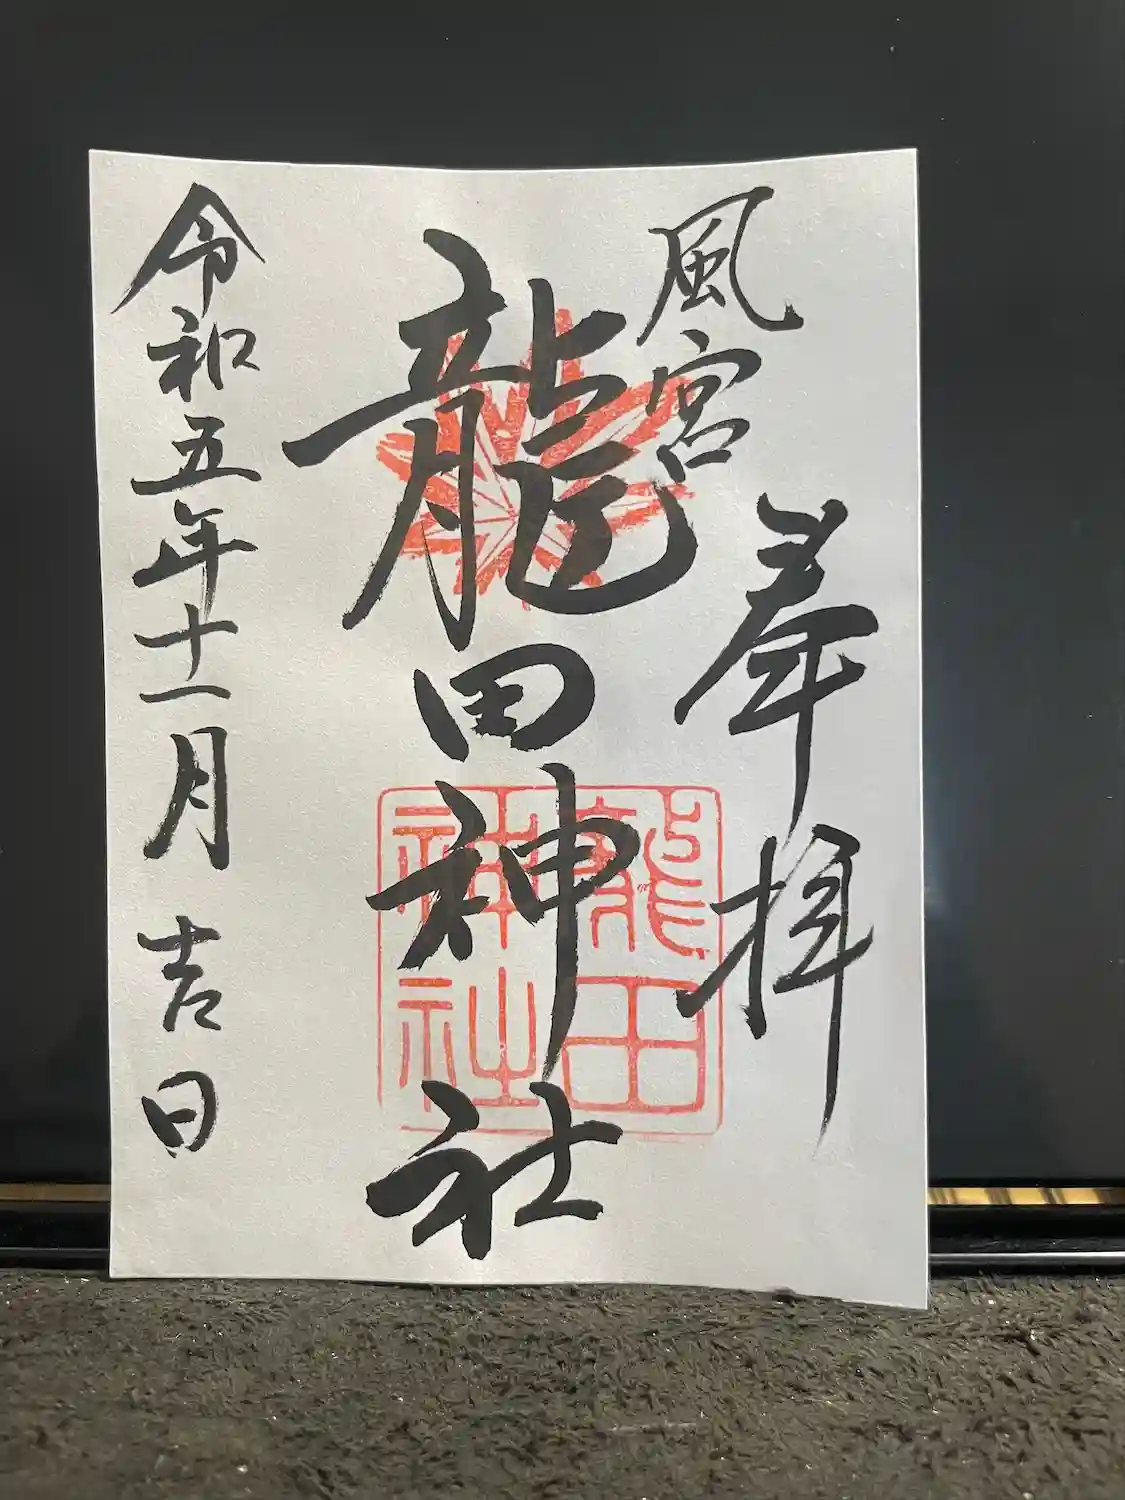 奉拝
風宮
龍田神社
龍田
神社
令和五年十一月吉日